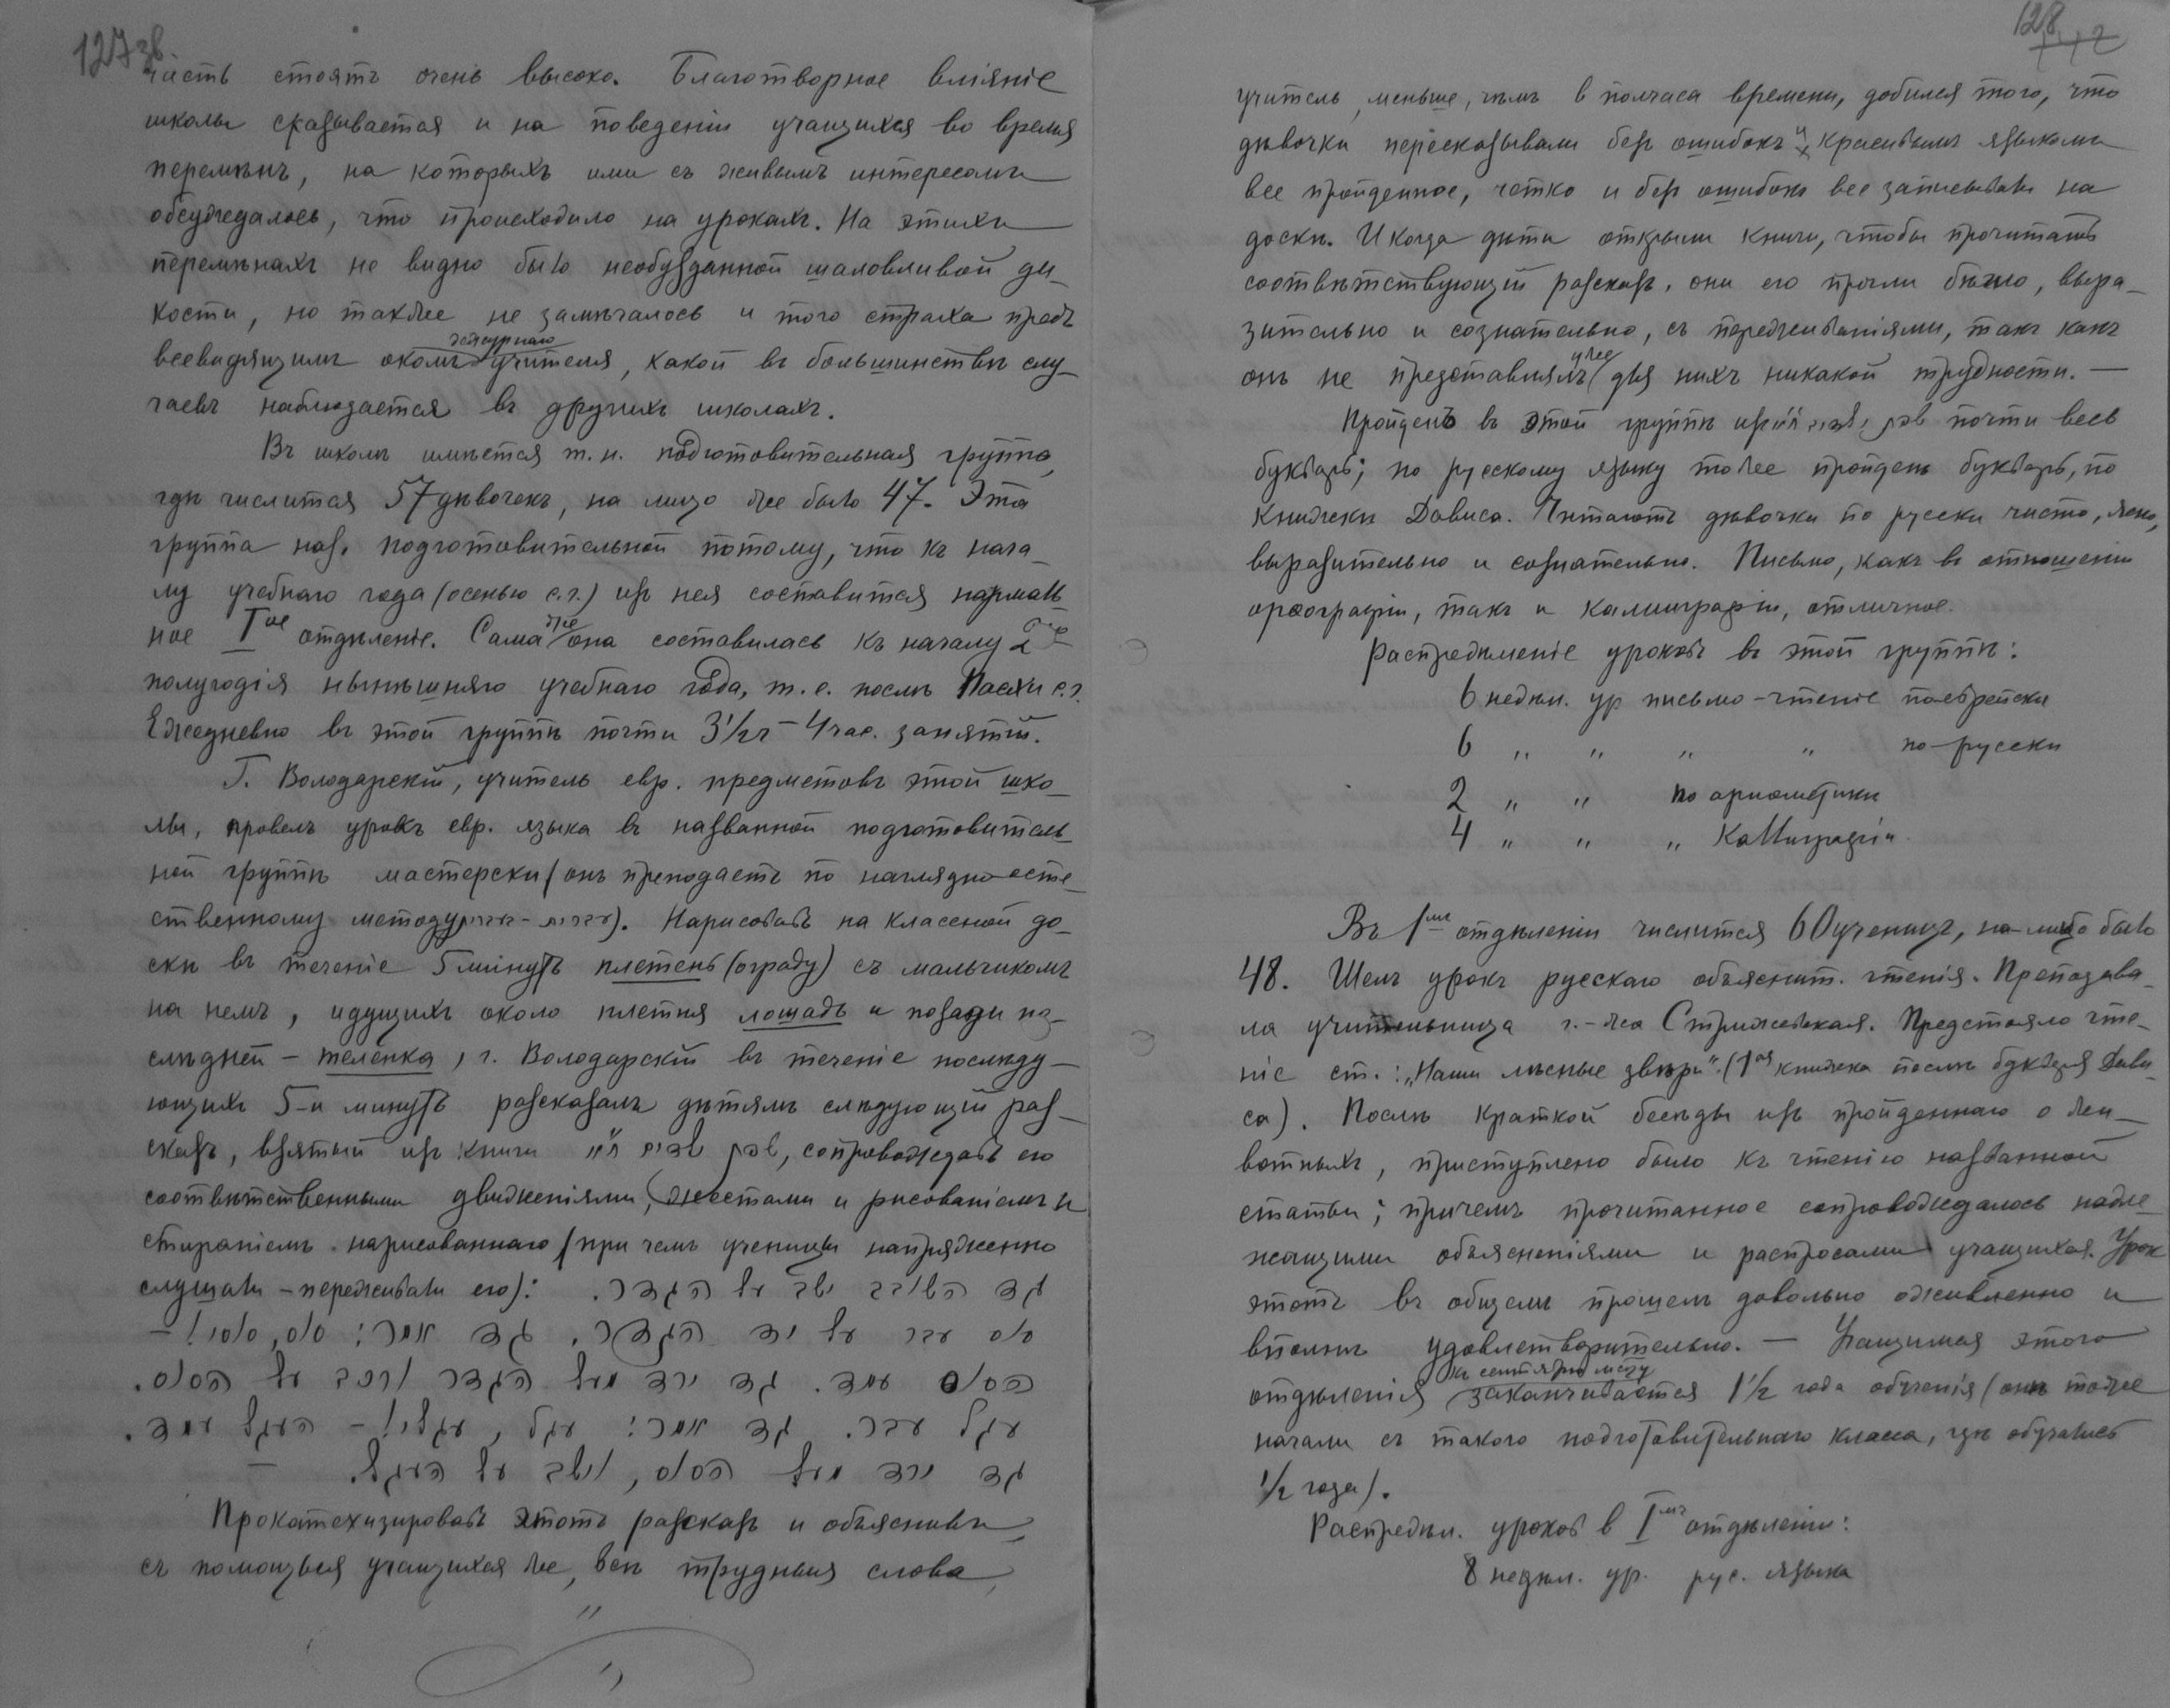 127 зв.
часть стоятъ очень высоко. Благотворное вліяніе
школы сказывается и на поведеніи учащихся во время
перемѣнъ, на которыхъ ими съ живымъ интересомъ
обсуждалось, что происходило на урокахъ. На этихъ
перемѣнахъ не видно было необузданной шаловливой ди-
кости, но также не замѣчалось и того страха предъ
дежурнаго
всевидящимъ окомъ учителя, какой въ большинствѣ слу-
чаевъ наблюдается въ другихъ школахъ.
Въ школѣ имѣется т. н. подготовительная группа,
гдѣ числится 57 дѣвочекъ, на лицо же было 47. Эта
группа наз. подготовительной потому, что къ нача-
лу учебнаго года (осенью с.г.) изъ нея составится нормаль-
ное I ое отдѣленіе. Сама же она составилась къ началу 2 го
полугодія нынѣшняго учебнаго года, т. е. послѣ Пасхи с.г.
Ежедневно въ этой группѣ почти 3½ ч – 4 час. занятій.
Г. Володарскій, учитель евр. предметовъ этой шко-
лы, провелъ урокъ евр. языка въ названной подготовитель-
ной группѣ мастерски (онъ преподаетъ по наглядно-есте-
ственному методу עברית - בעברית). Нарисовавъ на классной до-
скѣ въ теченіе 5 минутъ плетень (ограду) съ мальчикомъ
на немъ, идущихъ около плетня лошадь и позади по-
слѣдней – теленка, г. Володарскій въ теченіе послѣду-
ющихъ 5-и минутъ разсказалъ дѣтямъ слѣдующій раз-
сказъ, взятый изъ книги, сопровождавъ его
соотвѣтственными движеніями, жестами и рисованіемъ и
стираніемъ нарисованнаго (при чемъ ученицы напряженно
слушали – переживали его): גד השובב ישב על הגדר.
סוס עבר על יד הגדר. גד אמר: סוס, סוסי! –
הסוס עמד. גד ירד מעל הגדר ורכב על הסוס.
עגל עבר. גד אמר: עגל, עגלי! – העגל עמד.
גד ירד מעל הסוס, וישב על העגל. –
Прокатехизировавъ этотъ разсказъ и объяснивъ,
съ помощью учащихся же, всѣ трудныя слова,
128
учитель, меньше, чѣмъ в полчаса времени, добился того, что
дѣвочки пересказывали безъ ошибокъ и красивымъ языкомъ
все пройденное, четко и безъ ошибокъ все записывали на
доскѣ. И когда дѣти открыли книги, чтобы прочитать
соотвѣтствующій разсказъ, они его прочли бѣгло, выра-
зительно и сознательно, съ переживаніями, такъ какъ
онъ не представлялъ уже для нихъ никакой трудности. –
Пройденъ въ этой группѣ изъ почти весь
букварь; по русскому языку тоже пройденъ букварь, по
книжкѣ Дависа. Читаютъ дѣвочки по русски чисто, ясно,
выразительно и сознательно. Письмо, какъ въ отношеніи
орѳографіи, такъ и каллиграфіи, отличное.
Распредѣленіе уроковъ въ этой группѣ:
6 недѣл. ур письмо-чтеніе по еврейски
6 „ „ „ „ по-русски
2 „ „ по ариѳметикѣ
4 „ „ „ Каллиграфіи.
Въ 1 мъ отдѣленіи числится 60 ученицъ, на-лицо было
48. Шелъ урокъ русскаго объяснит. чтенія. Преподава-
ла учительница г.-жа Стрижевская. Предстояло чте-
ніе ст.: „Наши лѣсные звѣри". (1 ая книжка послѣ букваря Дави-
са). Послѣ краткой бесѣды изъ пройденнаго о жи-
вотныхъ, приступлено было къ чтенію названной
статьи; причемъ прочитанное сопровождалось надле-
жащими объясненіями и распросами учащихся. Урокъ
этотъ въ общемъ прошелъ довольно оживленно и
вполнѣ удовлетворительно. – Учащимся этого
къ сентябрю мѣсяцу
отдѣленія заканчивается 1½ года обученія (онѣ тоже
начали съ такого подготовительнаго класса, гдѣ обучались
½ года).
Распредѣл. уроковъ в I мъ отдѣленіи:
8 недѣл. ур. рус. языка